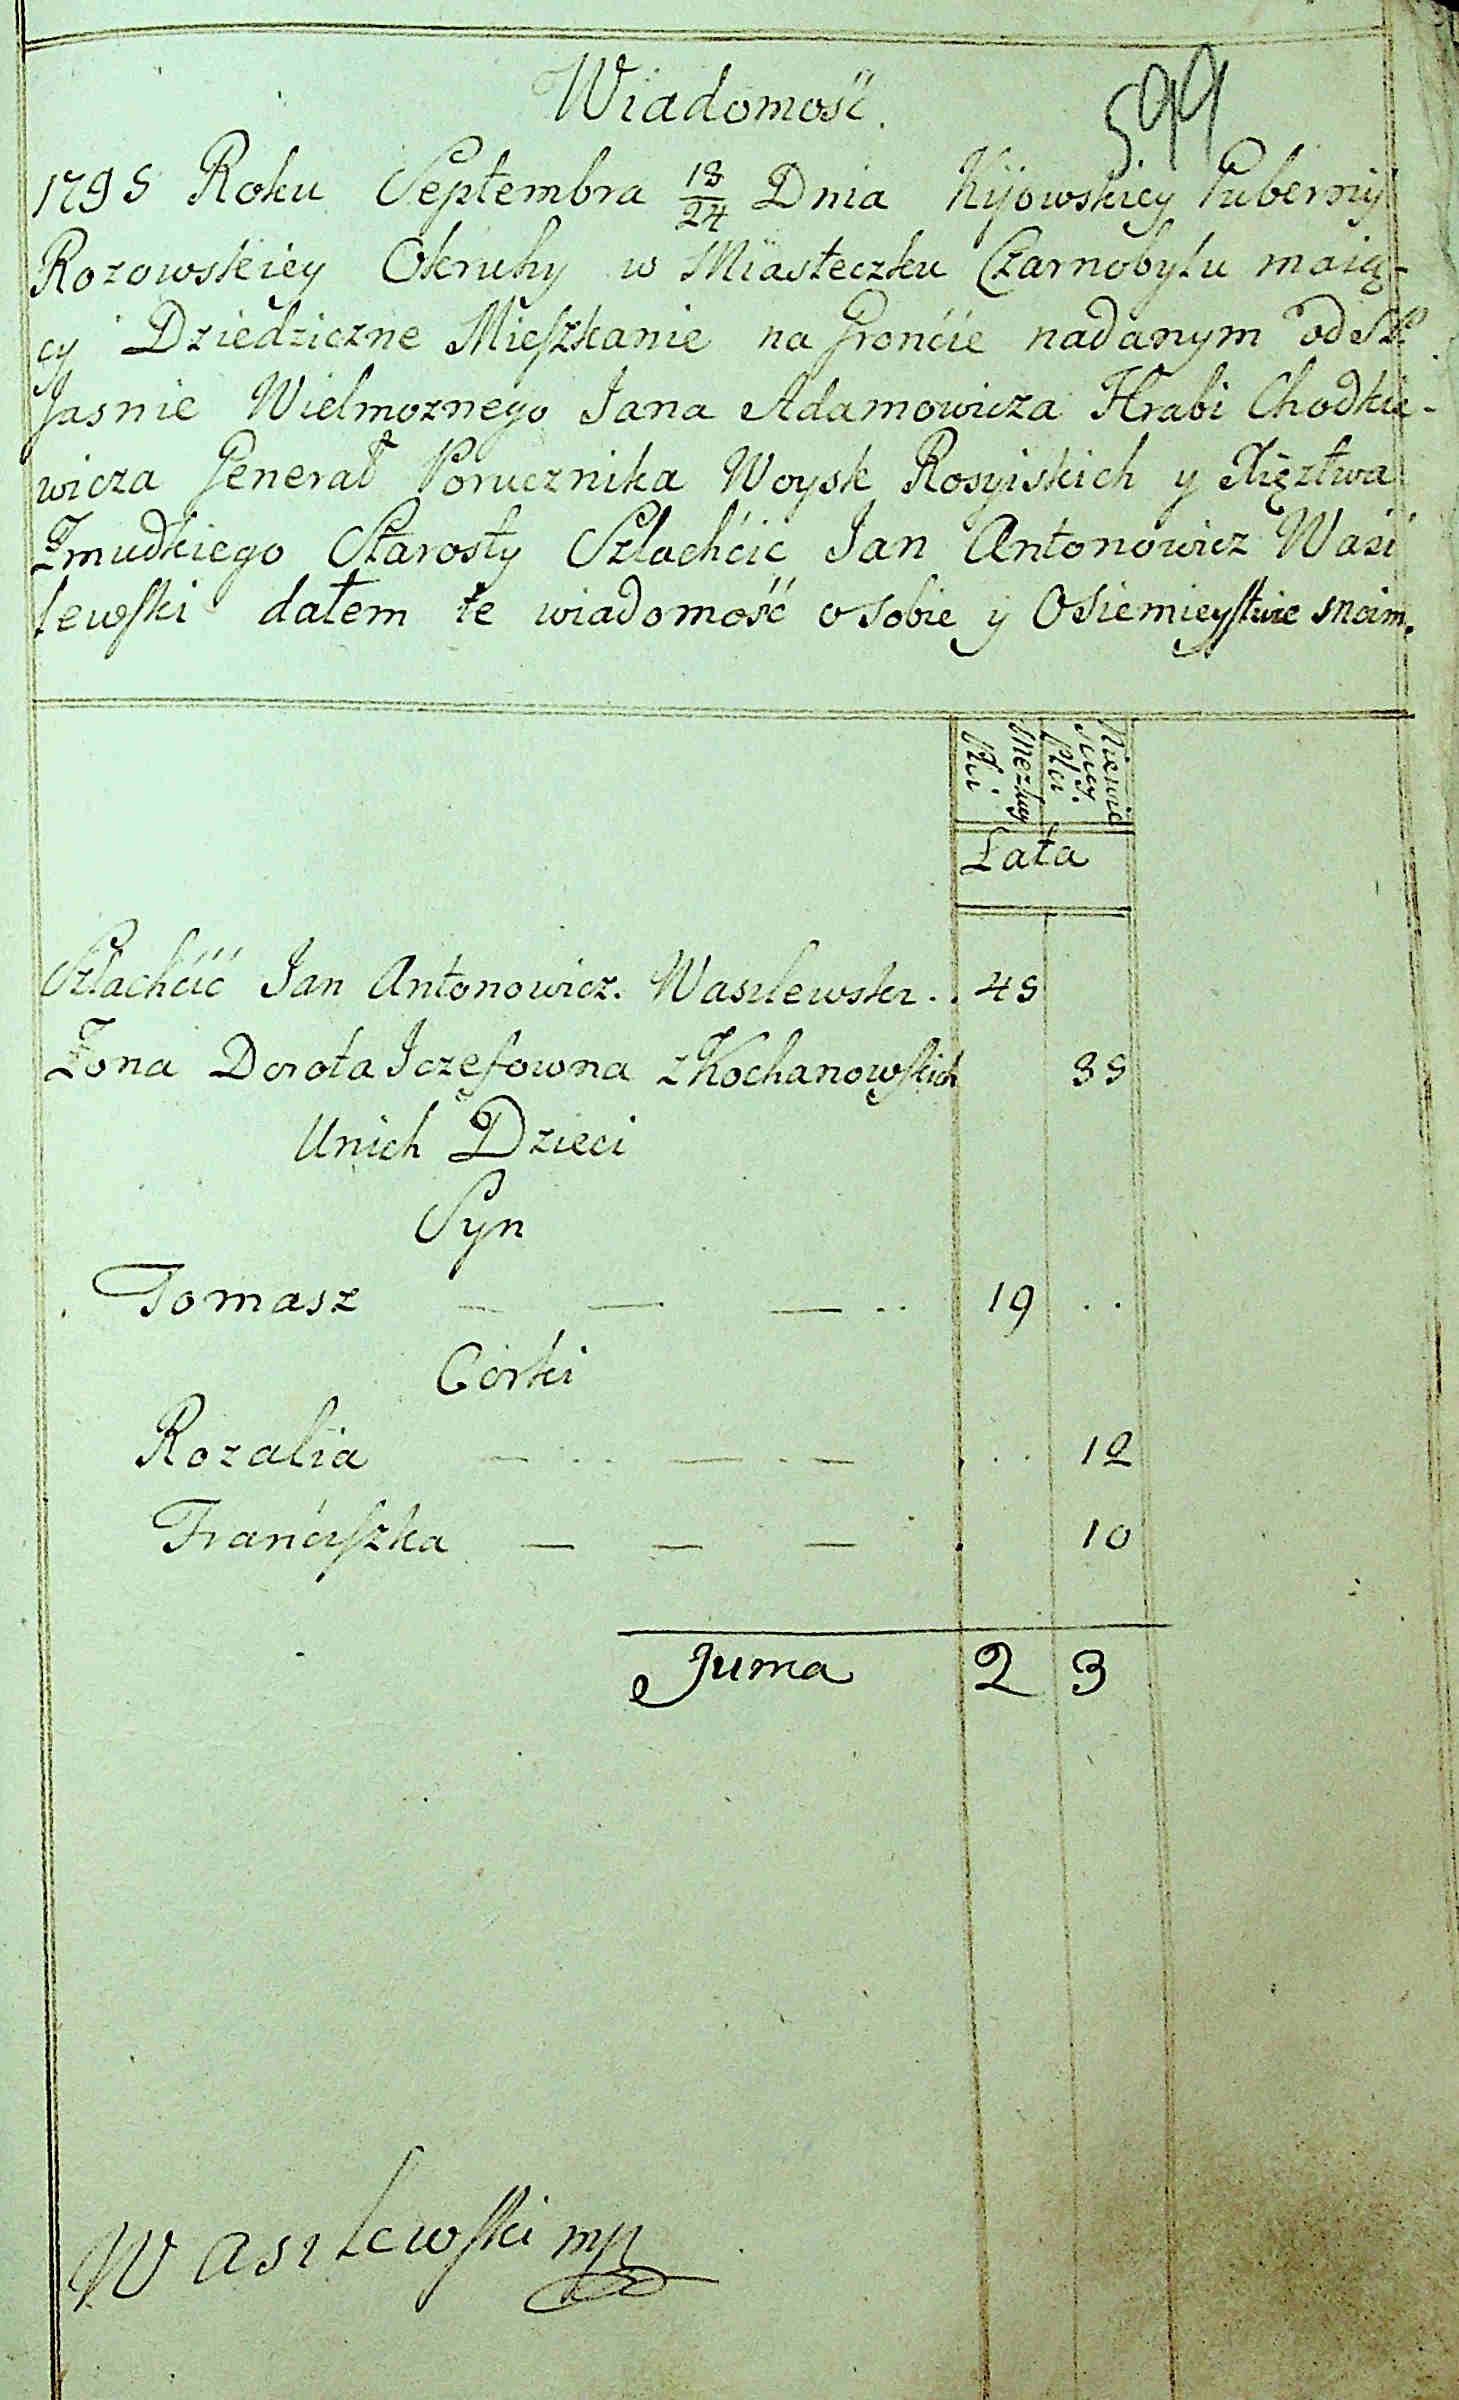 Wiadomość.
599
1795 Roku Septembra 13/24 Dnia Kijowskiey Gubernij
Rozowskiey Okruhy w Miasteczku Czarnobylu maią-
cy Dziedziczne Mieszkanie na Grońcie nadanym od
Jasnie Wielmoznego Jana Adamowicza Hrabi Chodkie-
wicza Generał Porucznika Woysk Rosyiskich y Xięztwa
Zmudkiego Starosty Szlachćic Jan Antonowicz Wasi
lewski dałem te wiadomość o sobie y Osiemieystwie
Mezkiey Płci
Niewieściey Płci
Lata
Szlachćić Jan Antonowicz. Wasilewski . . 45
Zona Dorota Jozefowna z Kochanowskich 35
Unich Dzieci
Syn
Tomasz — — — . . 19 . .
Corki
Rozalia — . . — . — . . . 12
Franćiszka — — — . 10
Suma 2 3
Wasilewski mp